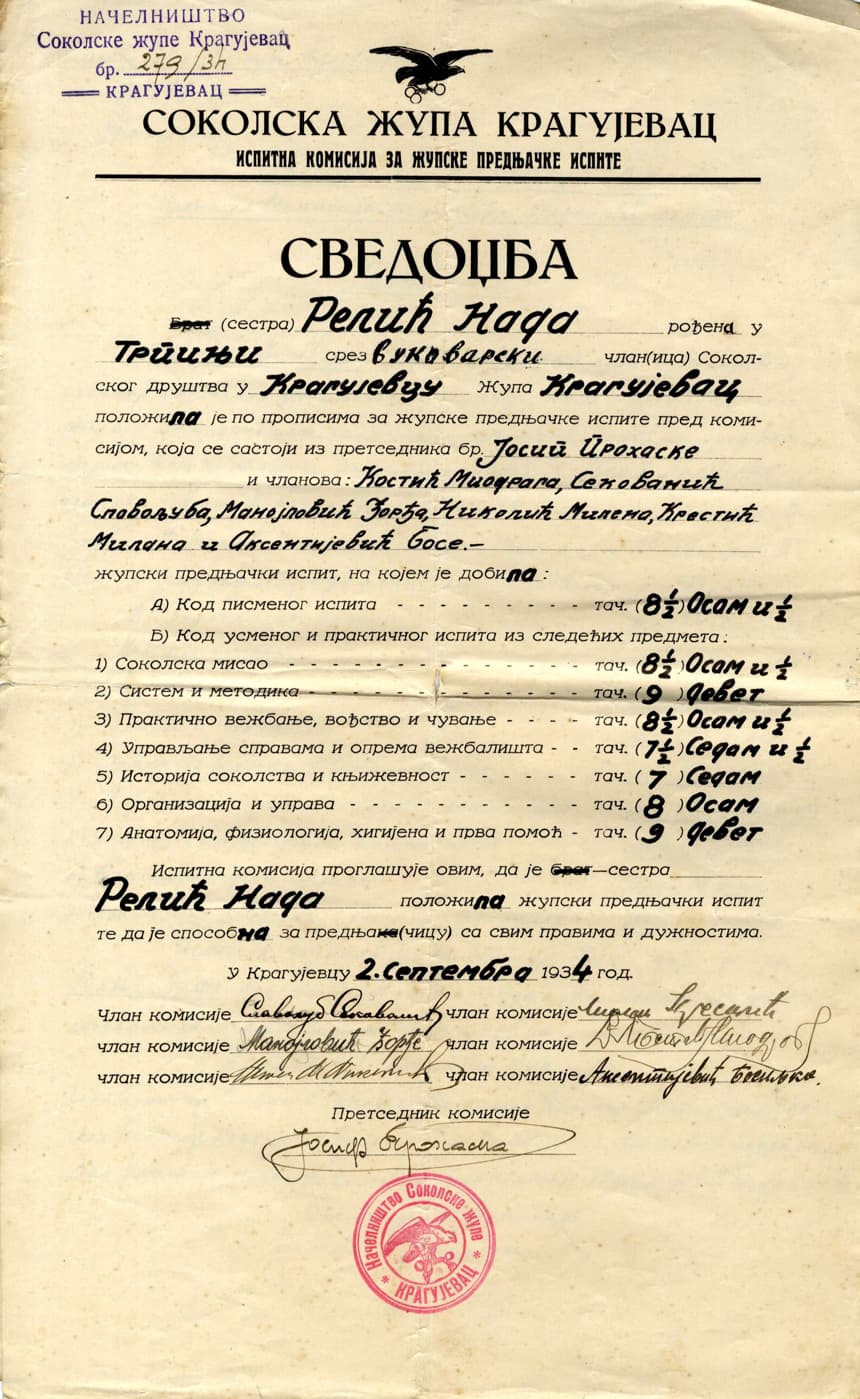 НАЧЕЛНИШТВО
Соколске жупе Крагујевац
бр. 279/34
КРАГУЈЕВАЦ
СОКОЛСКА ЖУПА КРАГУЈЕВАЦ
ИСПИТНА КОМИСИЈА ЗА ЖУПСКЕ ПРЕДЊАЧКЕ ИСПИТЕ
СВЕДОЏБА
Брат (сестра) Релић Нада рођена у
Трпињи срез вуковарски члан(ица) Сокол-
ског друштва у Крагујевцу Жупа Крагујевац
положила је по прописима за жупске предњачке испите пред коми-
сијом, која се састоји из претседника бр. Јосип Прохаске
и чланова: Костић Миодрага,
Славољуба, Манојловић Ђорђа, Николић Милена, Крестић
Милана и Аксентијевић Босе.—
жупски предњачки испит, на којем је добила:
А) Код писменог испита - - - - - - - - - тач. (8½) Осам и ½
Б) Код усменог и практичног испита из следећих предмета:
1) Соколска мисао - - - - - - - - - - - - - тач. (8½) Осам и ½
2) Систем и методика - - - - - - - - - - - - тач. (9) девет
3) Практично вежбање, вођство и чување - - - - тач. (8½) Осам и ½
4) Управљање справама и опрема вежбалишта - - тач. (7½) Седам и ½
5) Историја соколства и књижевност - - - - - - тач. (7) Седам
6) Организација и управа - - - - - - - - - - тач. (8) Осам
7) Анатомија, физиологија, хигијена и прва помоћ - тач. (9) девет
Испитна комисија проглашује овим, да је брат—сестра
Релић Нада положила жупски предњачки испит
те да је способна за предњака(чицу) са свим правима и дужностима.
У Крагујевцу 2. Септембра 1934 год.
Члан комисије Славољуб члан комисије
члан комисије Манојловић Ђорђе члан комисије
члан комисије члан комисије Аксентијевић
Претседник комисије
Јосиф Прохаска
Начелништво Соколске жупе
* КРАГУЈЕВАЦ *